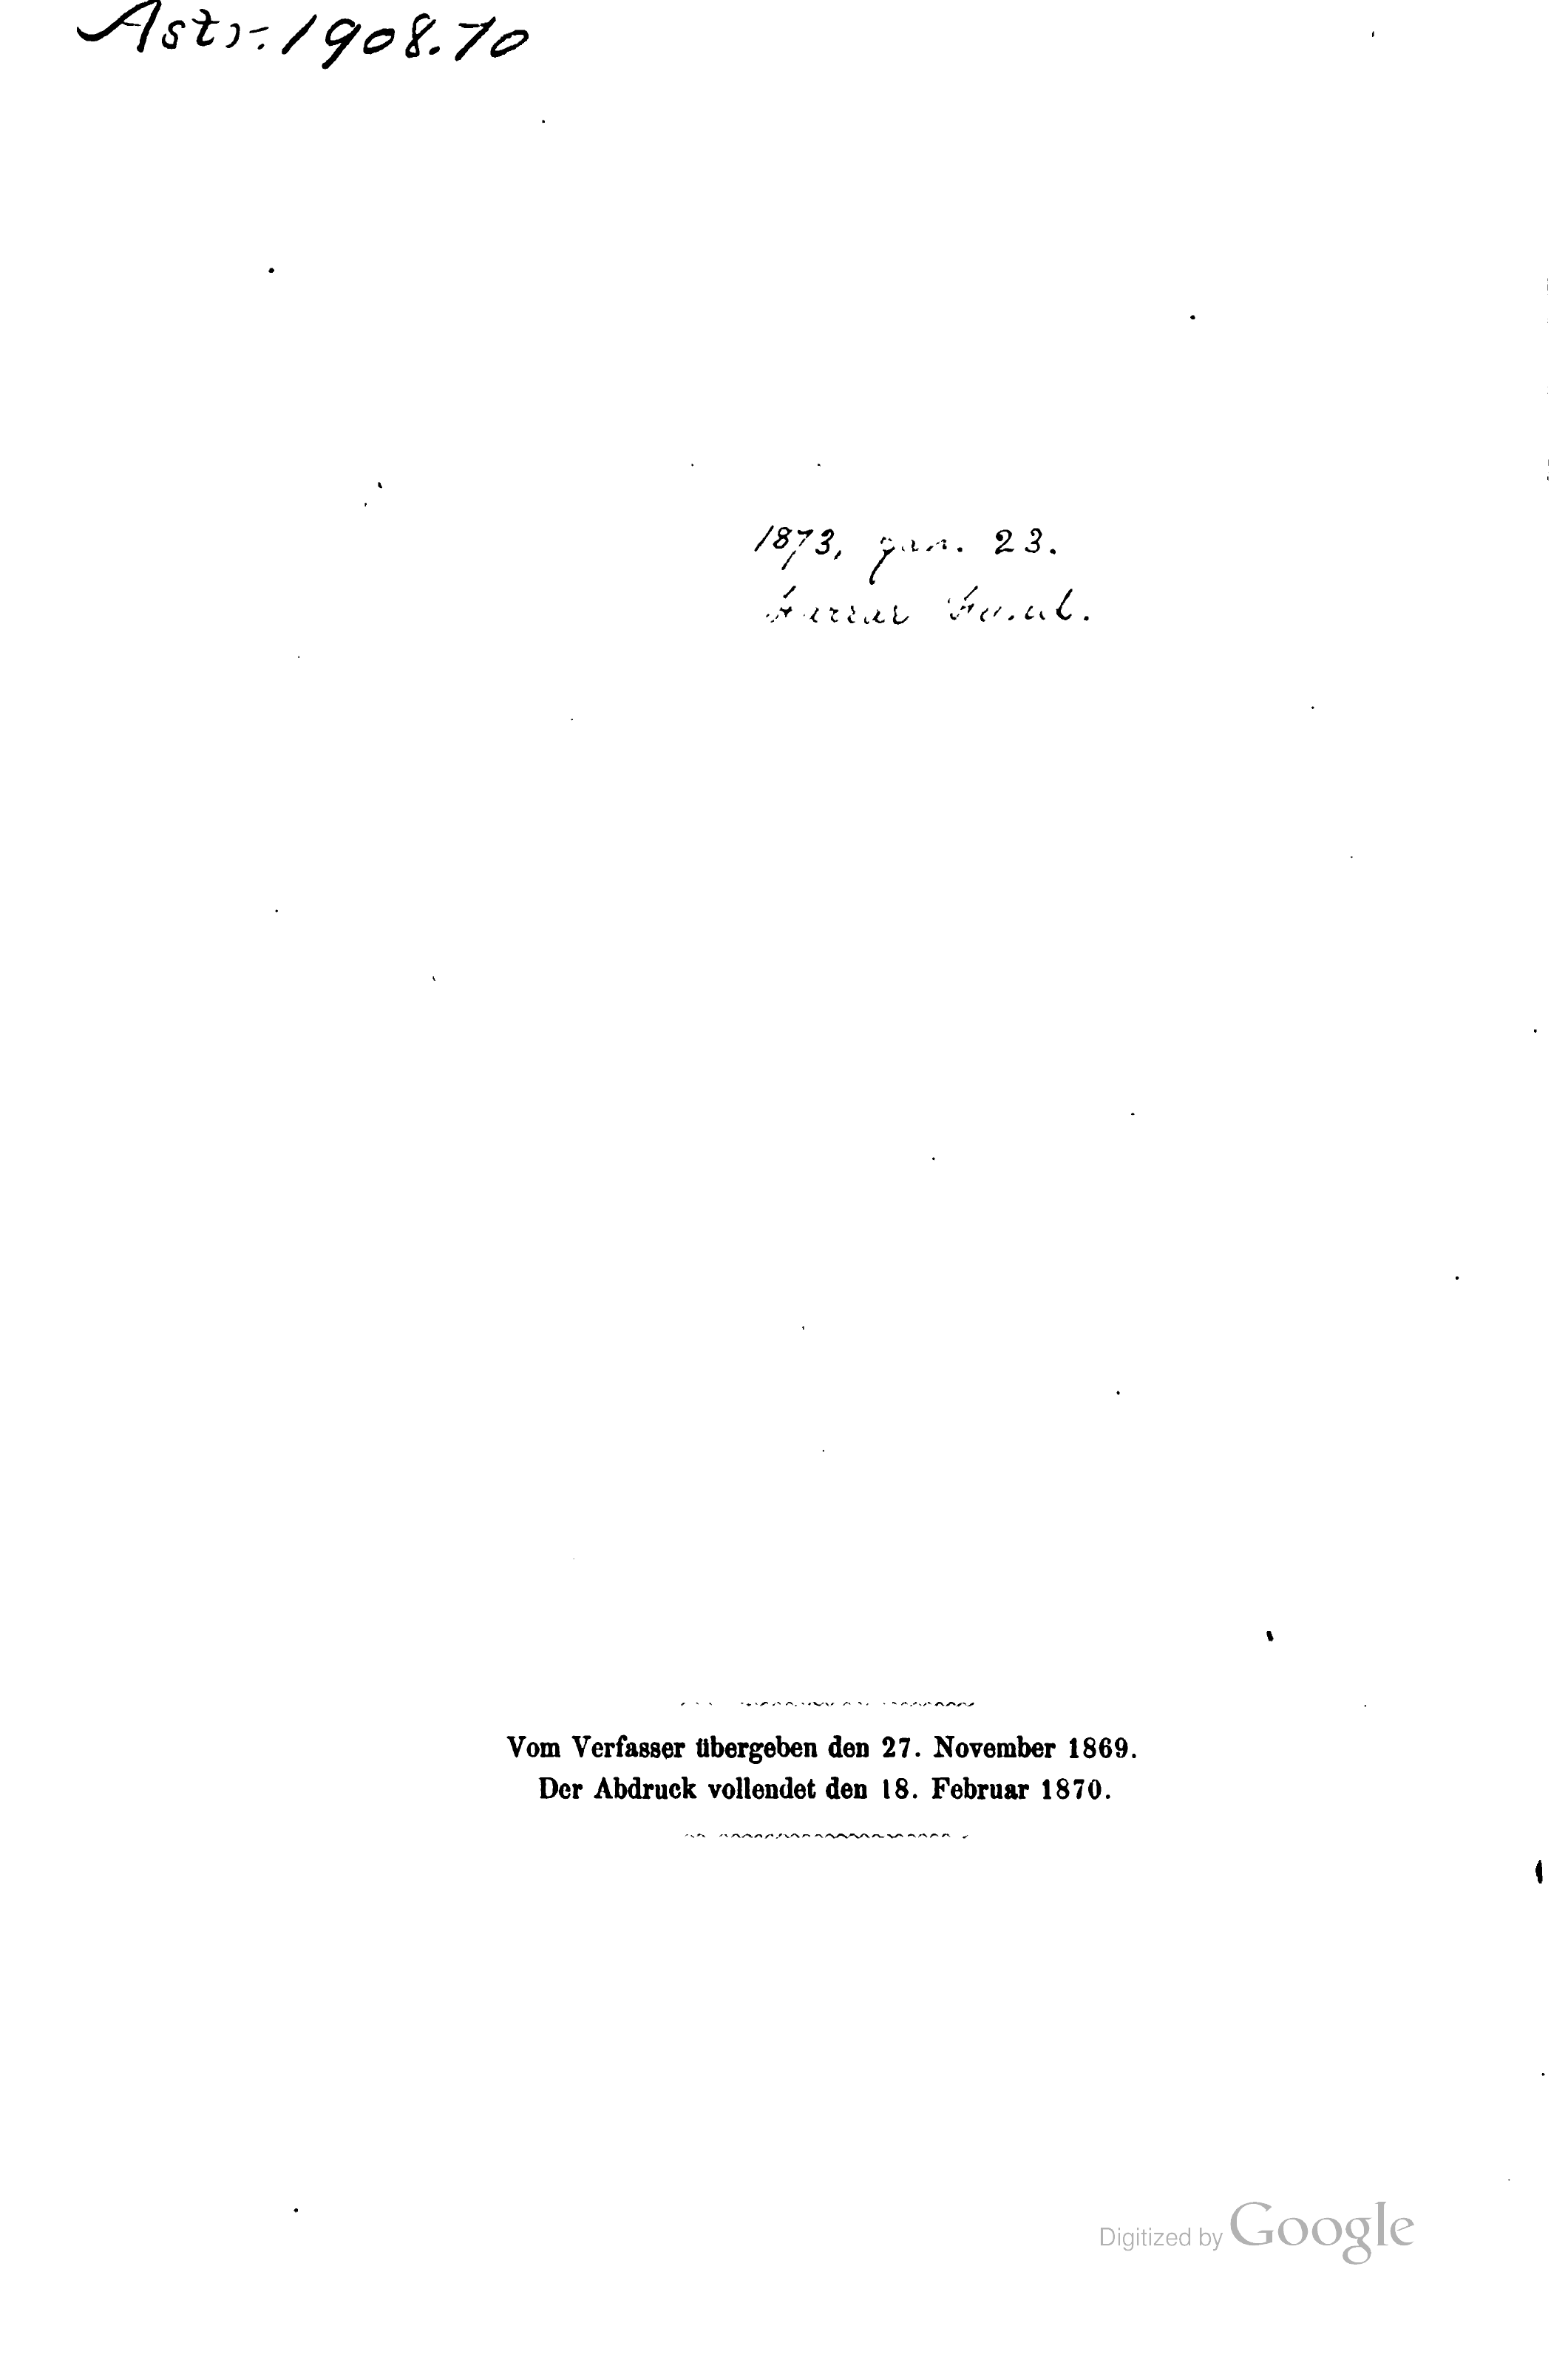 Astr. 1908.70
1873, Jan. 23.
Farrar Fund.
Vom Verfasser übergeben den 27. November 1869.
Der Abdruck vollendet den 18. Februar 1870.
Digitized by Google